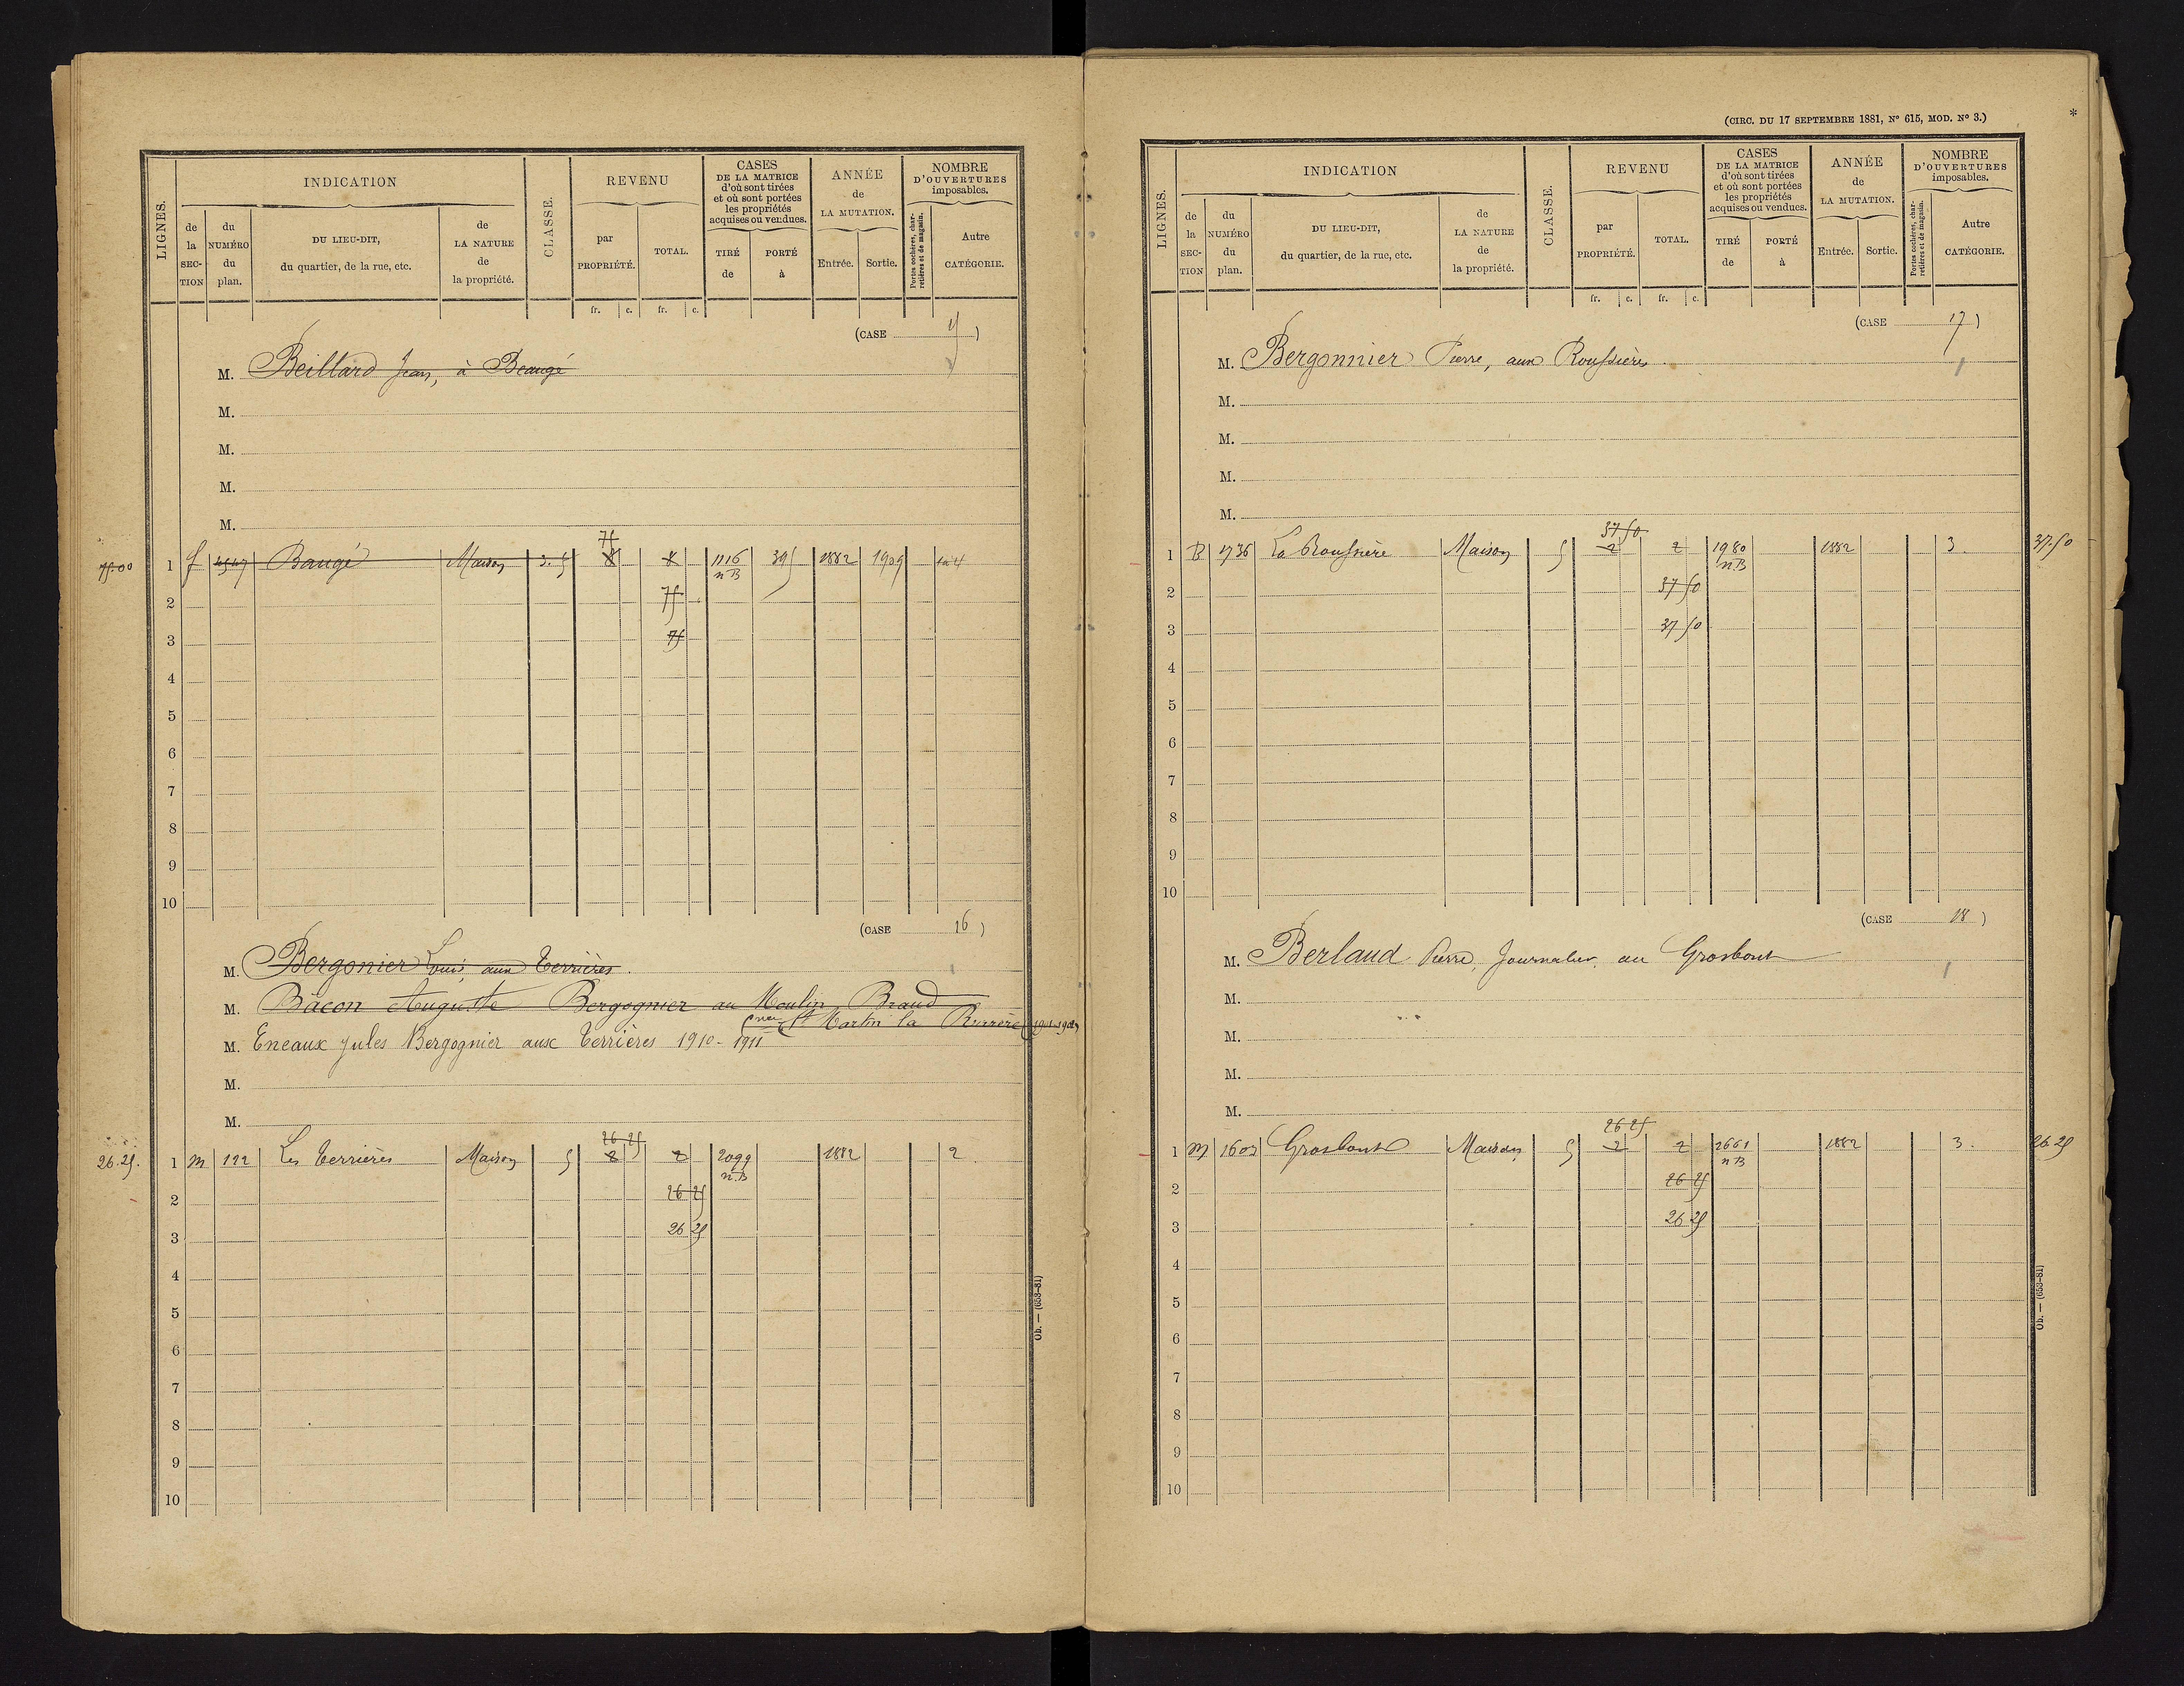 LIGNES.
INDICATION
de la SECTION
du NUMÉRO du plan.
DU LIEU-DIT, du quartier, de la rue, etc.
de LA NATURE de la propriété.
CLASSE.
REVENU
par PROPRIÉTÉ.
TOTAL.
CASES DE LA MATRICE d'où sont tirées et où sont portées les propriétés acquises ou vendues.
TIRÉ de
PORTÉ à
ANNÉE de LA MUTATION.
Entrée.
Sortie.
NOMBRE D'OUVERTURES imposables.
Portes cochères, charretières et de magasin.
Autre CATÉGORIE.
fr. c. fr. c.
(CASE )
M. Beillard Jean, à Beaugé
M.
M.
M.
M.
75
75.00 1 Baugé Maison 3.5 8 8 1116 395 1882 1909
n B
2 75
3 75
4
5
6
7
8
9
10
(CASE 16 )
M. Bergonier Louis, aux Terrières.
M. Bacon Auguste Bergognier au Moulin Braud
St Martin la Rivière
M. Eneaux Jules Bergognier aux Terrières 1910-1911
M.
M.
26 25
26.25. 1 M 122 Les Terrières Maison 5 2 2 2099 1882 2
n.B
2 26 25
3 26 25
4
5
6
7
8
9
10
Ob. — (653-81)
(CIRC. DU 17 SEPTEMBRE 1881, Nº 615, MOD. Nº 3.)
*
LIGNES.
INDICATION
de la SECTION
du NUMÉRO du plan.
DU LIEU-DIT, du quartier, de la rue, etc.
de LA NATURE de la propriété.
CLASSE.
REVENU
par PROPRIÉTÉ.
TOTAL.
CASES DE LA MATRICE d'où sont tirées et où sont portées les propriétés acquises ou vendues.
TIRÉ de
PORTÉ à
ANNÉE de LA MUTATION.
Entrée.
Sortie.
NOMBRE D'OUVERTURES imposables.
Portes cochères, charretières et de magasin.
Autre CATÉGORIE.
fr. c. fr. c.
(CASE 17 )
M. Bergonnier Pierre, aux Roussières.
M.
M.
M.
M.
37 50
1 B 1736 La Roussière Maison 5 2 2 1980 1882 3. 37.50
n.B
2 37 50
3 37 50
4
5
6
7
8
9
10
(CASE 18 )
M. Berland Pierre, Journalier, au Grosbout
M.
M.
M.
M.
26 25
1 M 1603 Grosbout Maison 5 2 2 2661 1882 3. 26 25
n B
2 26 25
3 26 25
4
5
6
7
8
9
10
Ob. — (653-81)